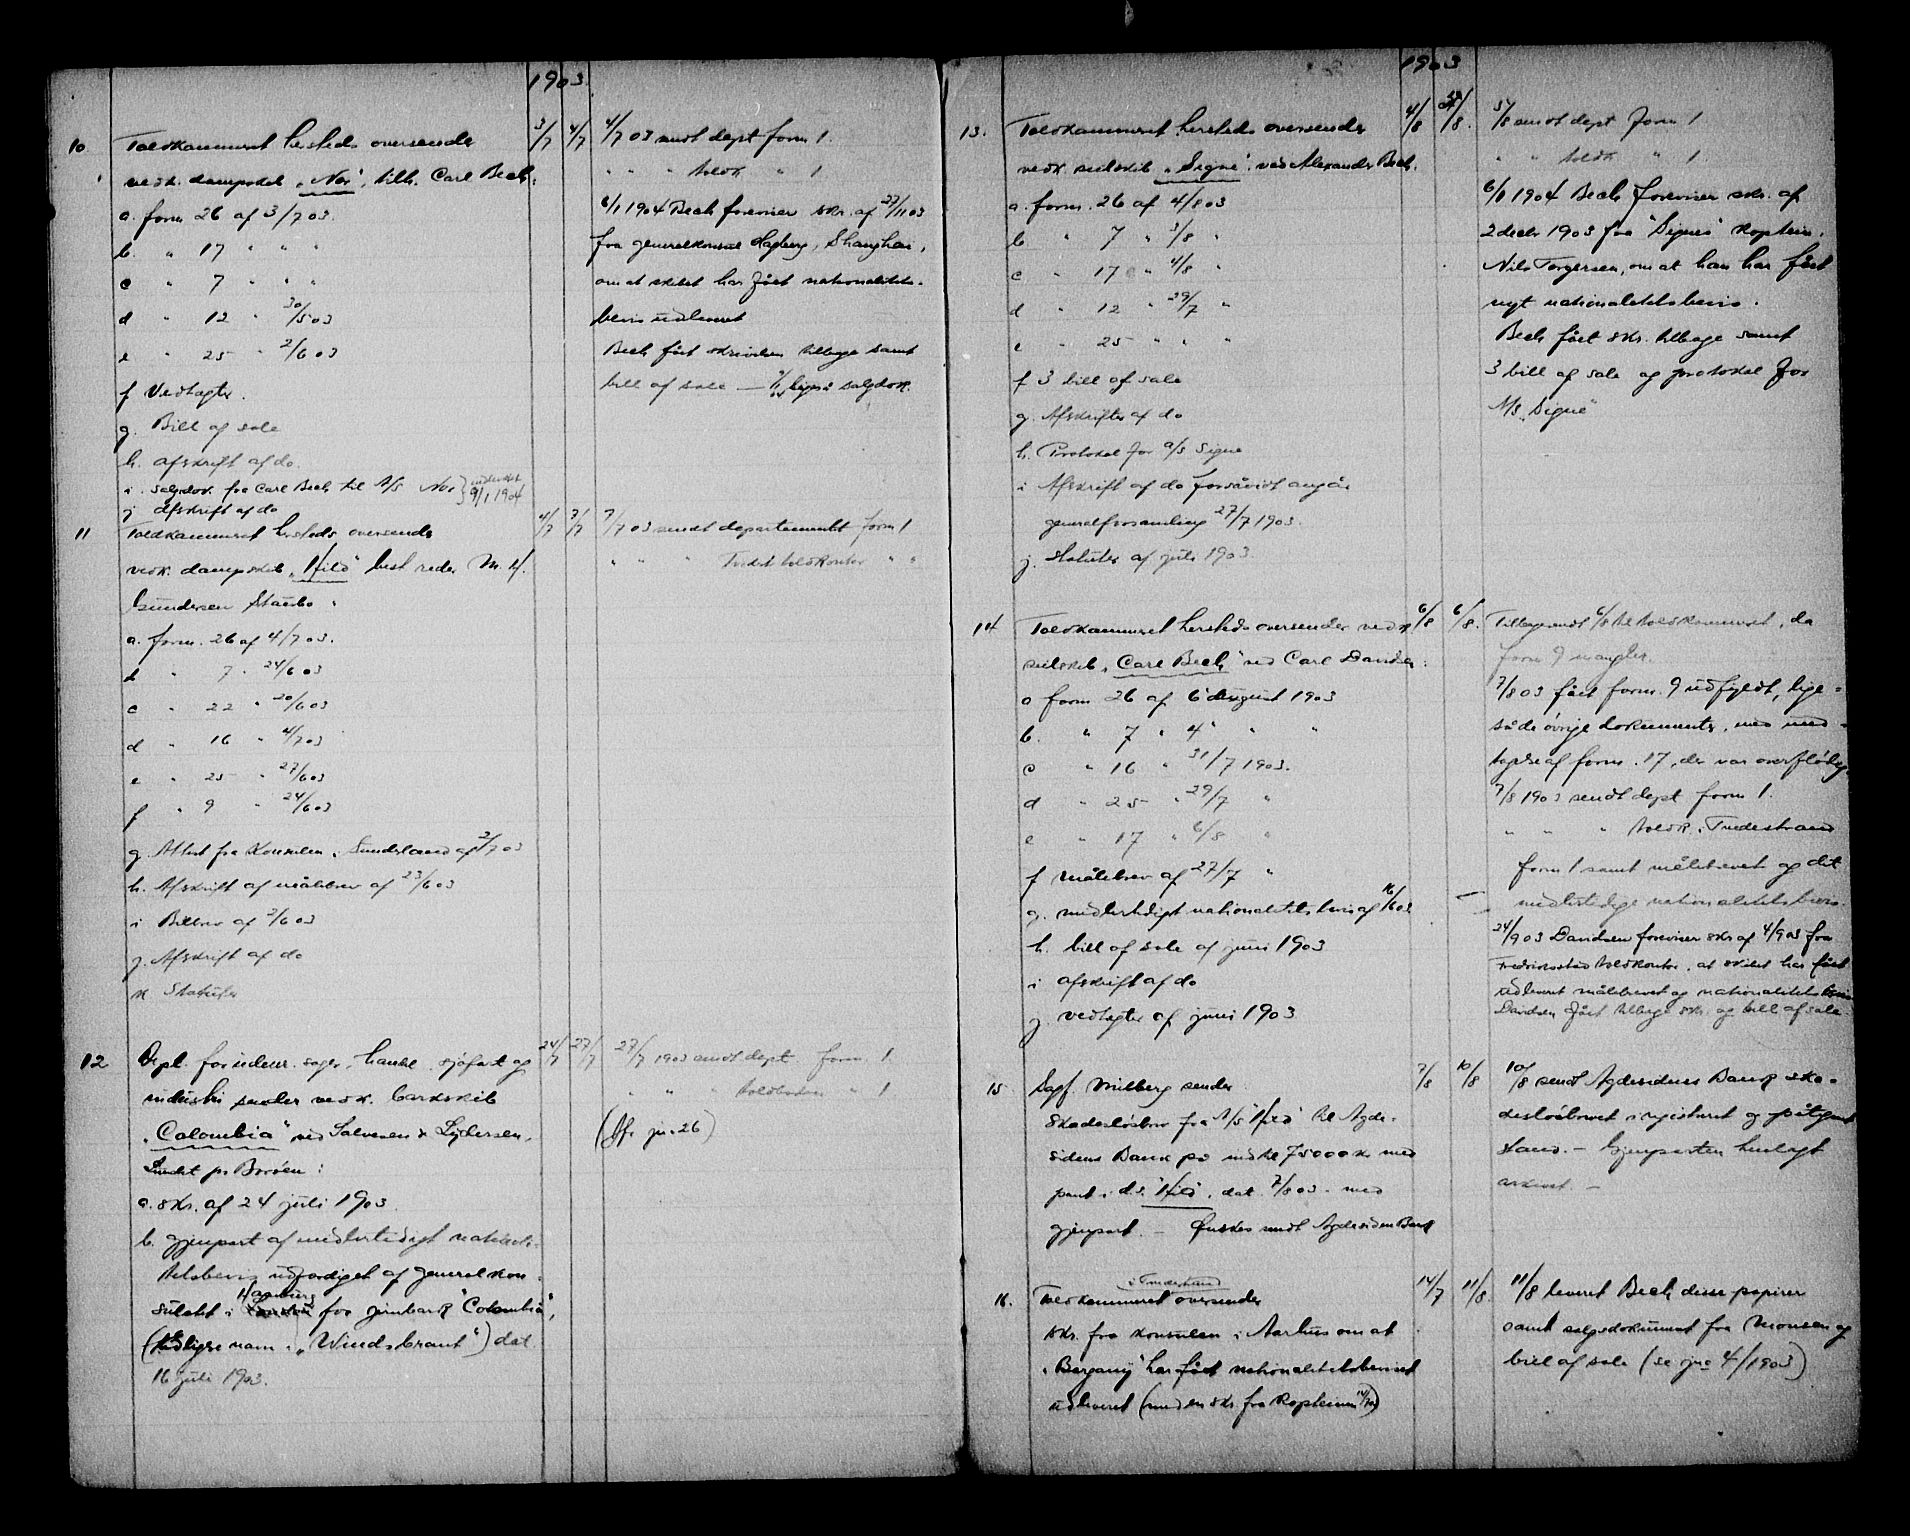 1903.
10 Toldkammeret hersteds oversender
vedk. dampskib „Nor", tilh. Carl Bech:
a. form 26 af 3/7 03.
b. " 17 " " "
c " 7 " " "
d " 12 " 30/5 03
e " 25 " 2/6 03
f Vedtægter.
g. Bill of sale
h. afskrift af do.
i. salgsdok fra Carl Bech til A/S Nor } udleveret
j afskrift af do 9/1 1904
3/7 4/7
4/7 03 sendt dept form 1.
" " " toldk " 1
6/1 1904 Bech foreviser skr. af 27/11 03
fra generalkonsul Hagberg, Shanghai,
om at skibet har fået nationalitets-
bevis udleveret
Bech fået skrivelsen tilbage samt
bill of sale — ligeså salgsdok.
11 Toldkammeret hersteds oversender
vedk. dampskib „Hild" best. reder M. H.
Gundersen Staubo:
a. form. 26 af 4/7 03.
b " 7 " 24/6 03
c " 22 " 20/6 03
d " 16 " 4/7 03
e " 25 " 27/6 03
f " 9 " 24/6 03
g. Attest fra Konsulen i Sunderland af 2/7 03
h. Afskrift af målebrev af 23/6 03
i Bilbrev af 2/6 03
j. Afskrift af do
k Statuter
4/7 7/7
7/7 03 sendt departementet form 1
" " " toldkontor " "
12 Dept. for udenr. sager, handel, sjøfart og
industri sender vedk. barkskib
„Colombia" ved Salvesen & Lydersen,
Lundet pr Borøen:
a. skr. af 24 juli 1903.
b. gjenpart af midlertidigt nationali-
tetsbevis udfærdiget af generalkon-
sulatet i Hamburg for jernbark "Colombia",
(tidligere navn: „Windsbraut") dat.
16 juli 1903.
24/7 27/7
27/7 1903 sendt dept. form. 1.
" " " toldboden " 1
(Jfr jn. 26)
1903
13. Toldkammeret hersteds oversender
vedk. seilskib „Signe" ved Alexander Bech.
a. form. 26 af 4/8 03
b " 7 " 3/8 "
c " 17 " 4/8 "
d " 12 " 29/7 "
e " 25 " " "
f 3 bill of sale
g. Afskrifter af do
h. Protokol for a/s Signe
i Afskrift af do forsåvidt angår
generalforsamling 27/7 1903.
j. statuter af juli 1903.
4/8 5/8.
5/8 sendt dept form 1
" " toldk " 1.
6/1 1904 Bech foreviser skr. af
2 decbr 1903 fra "Signe"s kaptein.
Nils Torgersen, om at han har fået
nyt nationalitetsbevis.
Bech fået skr. tilbage samt
3 bill of sale og protokol for
A/S „Signe"
14 Toldkammeret hersteds oversender vedk
seilskib „Carl Bech" ved Carl Davidsen:
a form 26 af 6 august 1903
b. " 7 " 4 " " "
c " 16 " 31/7 1903.
d " 25 " 29/7 "
e " 17 " 6/8 "
f målebrev af 27/7 "
g. midlertidigt nationalitetsbevis af 16/6 03.
h. bill of sale af juni 1903
i afskrift af do
j. vedtægter af juni 1903
6/8 6/8.
Tilbagesendt 6/8 til toldkammeret, da
form 9 mangler.
7/8 03 fået form. 9 udfyldt, lige-
så de øvrige dokumenter, med und-
tagelse af form. 17, der var overflødig.
7/8 1903 sendt dept form 1.
" " " toldk. i Tvedestrand
form 1 samt målebrevet og det
midlertidige nationalitetsbevis.
24/9 03 Davidsen foreviser skr af 4/9 03 fra
Fredriksstad toldkontor, at skibet har fået
udleveret målebrevet og nationalitetsbevis
Davidsen fået tilbage skr. og bill of sale.
15 Sagf. Milberg sender
Skadesløsbrev fra A/S "Hild" til Agde-
sidens Bank på indtil 75000 kr med
pant i d.s. "Hild", dat. 7/8 03. med
gjenpart. — Ønskes sendt Agdesidens Bank
7/8 10/8
10/8 sendt Agdesidens Bank ska-
desløsbrevet i registreret og påtegnet
stand. — Gjenparten henlagt
arkivet. —
16. Toldkammeret i Tvedestrand oversender
skr. fra konsulen i Aarhus om at
„Bergany" har fået nationalitetsbeviset
udleveret (med en skr fra kapteinen 14/7 03)
14/7 11/8.
11/8 leveret Bech disse papirer
samt salgsdokument fra Monsen og
bill of sale (se jno 4/1903)